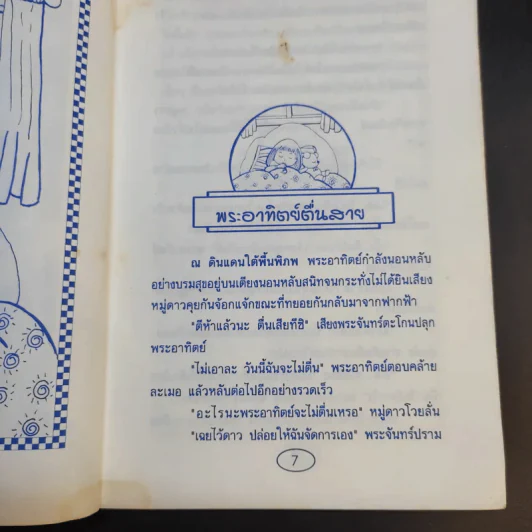 พระอาทิตย์ตื่นสาย
ณ ดินแดนใต้พื้นพิภพ พระอาทิตย์กำลังนอนหลับ
อย่างบรมสุขอยู่บนเตียงนอนหลับสนิทจนกระทั่งไม่ได้ยินเสียง
หมู่ดาวคุยกันจ้อกแจ้กขณะที่ทยอยกันกลับมาจากฟากฟ้า
"ตีห้าแล้วนะ ตื่นเสียทีซิ" เสียงพระจันทร์ตะโกนปลุก
พระอาทิตย์
"ไม่เอาละ วันนี้ฉันจะไม่ตื่น" พระอาทิตย์ตอบคล้าย
ละเมอ แล้วหลับต่อไปอีกอย่างรวดเร็ว
"อะไรนะพระอาทิตย์จะไม่ตื่นเหรอ" หมู่ดาวโวยลั่น
"เฉยไว้ดาว ปล่อยให้ฉันจัดการเอง" พระจันทร์ปราม
7